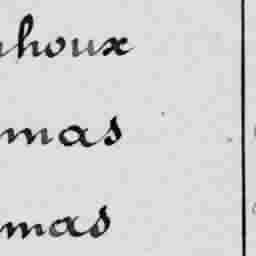 houx
mas
mas